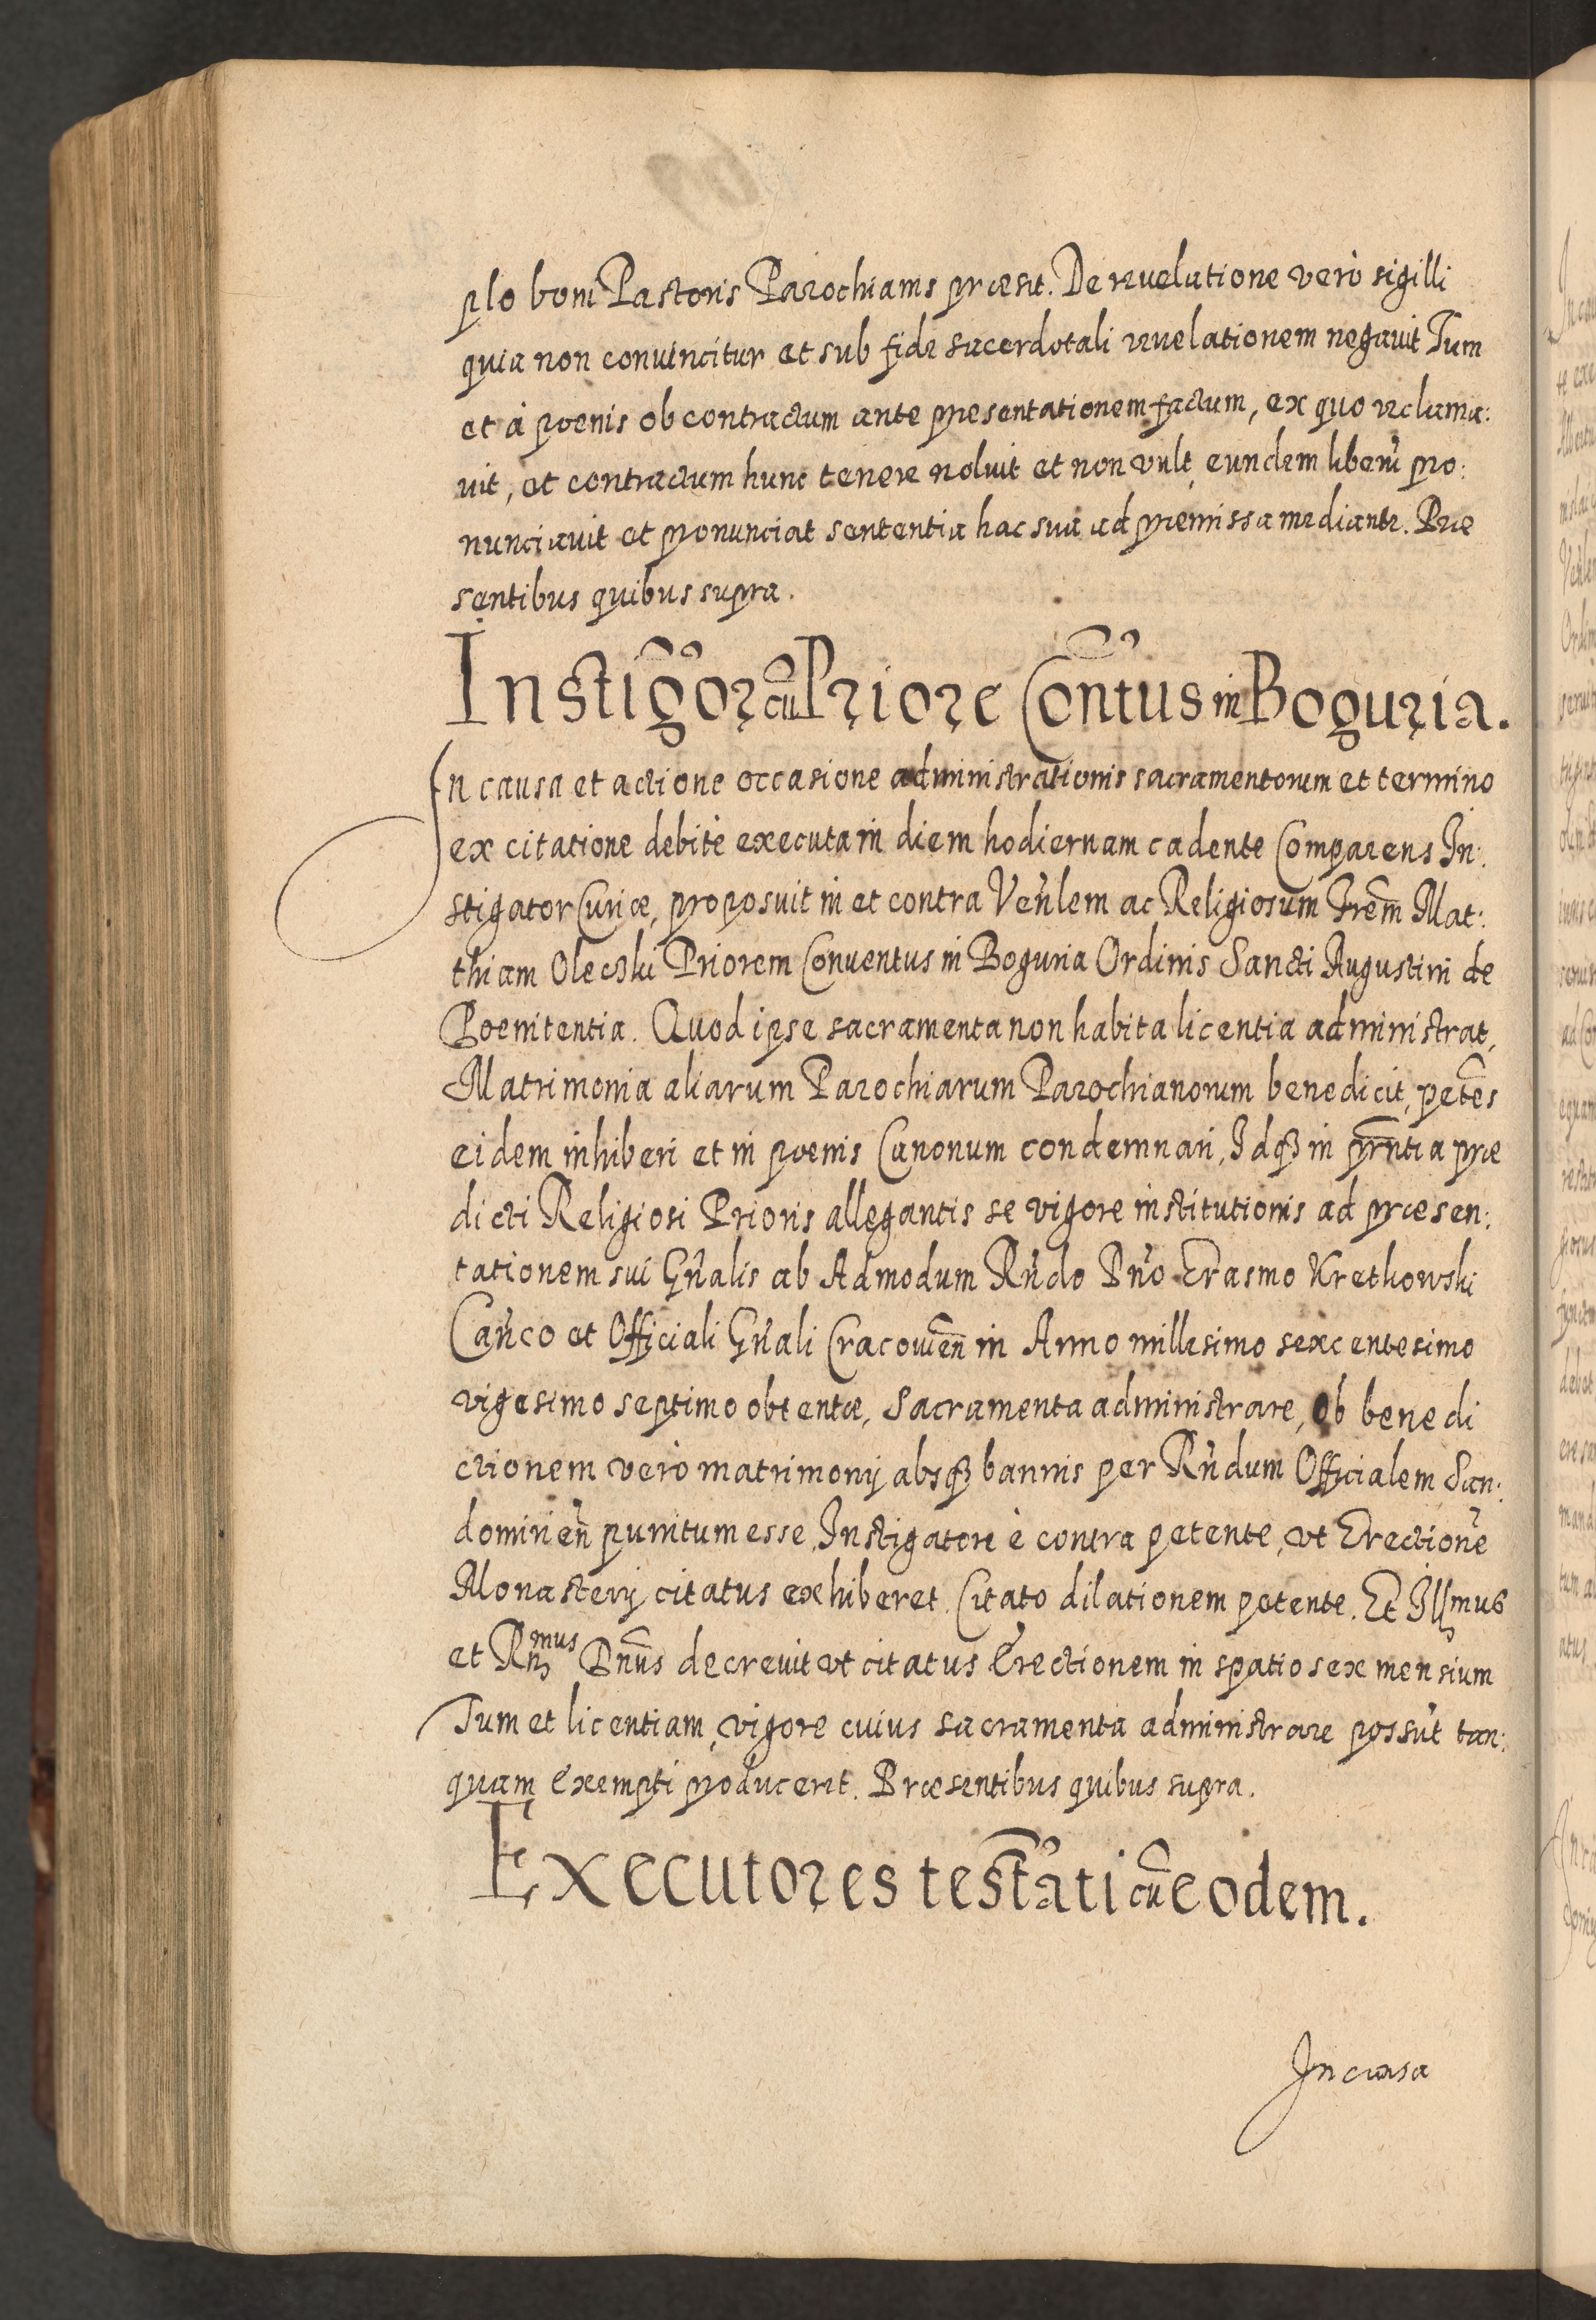 plo boni Pastoris Parochianis præsit. De reuelatione verò sigilli
quia non conuincitur et sub fide sacerdotali reuelationem negauit Tum
et à poenis ob contractum ante presentationem factum, ex quo reclama:
uit, et contractum hunc tenere noluit et non vult, eundem liberũ pro:
nunciauit et pronunciat sententia hac sua ad præmissa mediante. Præ
sentibus quibus supra.
Instigor̃ cũ Priore Conũtus in Boguria.
In causa et actione occasione administrationis sacramentorum et termino
ex citatione debitè executa in diem hodiernam cadente Comparens In:
stigator Curiæ, proposuit in et contra Venlem̃ ac Religiosum Frem̃ Mat:
thiam Olecski Priorem Conuentus in Boguria Ordinis Sancti Augustini de
Poenitentia. Quod ipse sacramenta non habita licentia administrat,
Matrimonia aliarum Parochiarum Parochianorum benedicit, petẽs
eidem inhiberi et in poenis Canonum condemnari, Idqꝫ in prñtia præ
dicti Religiosi Prioris allegantis se vigore institutionis ad præsen:
tationem sui Gñalis ab Admodum Rñdo Dño Erasmo Kretkowski
Cañco et Officiali Gñali Cracouień in Anno millesimo sexcentesimo
vigesimo septimo obtentæ, Sacramenta administrare, Ob benedi
ctionem verò matrimonij absqꝫ bannis per Rñdum Officialem San:
domirień punitum esse, Instigatore è contra petente, vt Erectionẽ
Monasterij citatus exhiberet. Citato dilationem petente. Et Illꝫmus
et Rñꝫmus Dñus decreuit vt citatus Erectionem in spatio sex mensium
Tum et licentiam, vigore cuius sacramenta administrare possũt tan:
quam exempti produceret. Præsentibus quibus supra.
Executores test̃ati cũ eodem.
In causa